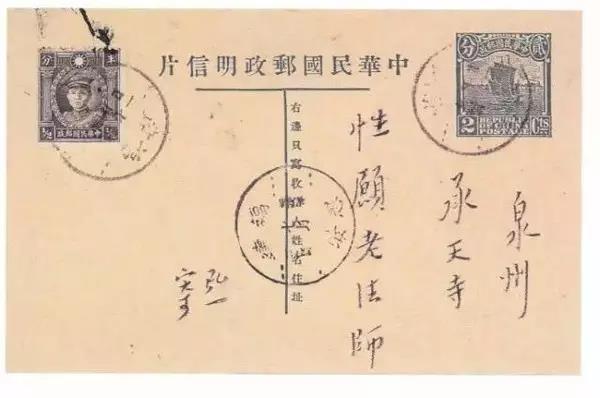 中華民國郵政明信片
貳分
中華民國郵政
2 Cts.
REPUBLIC
OF CHINA
POSTAGE
半分
½ 中華民國郵政 ½
泉州
承天寺
性願老法師
右邊只寫收件人姓名住址
弘一